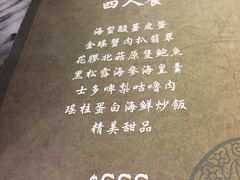 四人餐
海蜇酸薑皮蛋
金瑤蟹肉扒翡翠
花膠北菇原隻鮑魚
黑松露海參海皇羹
士多啤梨咕嚕肉
瑤柱蛋白海鮮炒飯
精美甜品